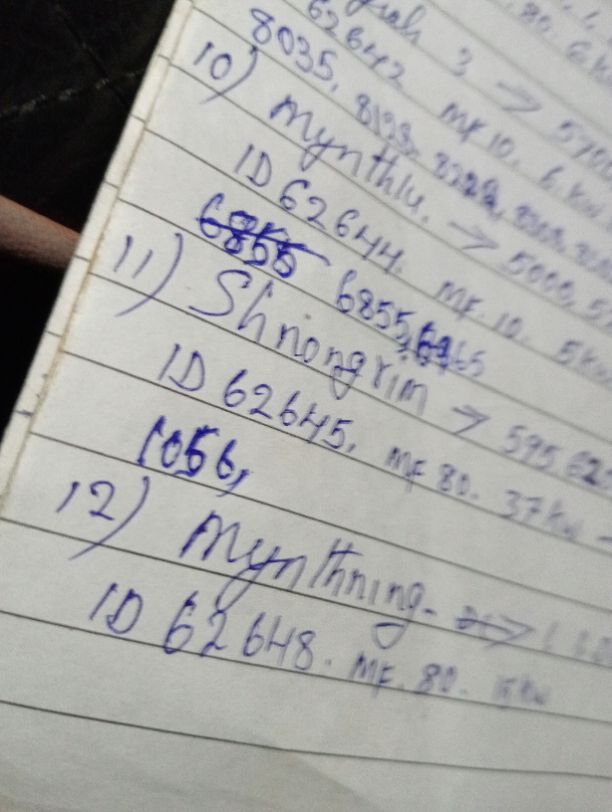 62642 MF 10. 6 Kw
8035, 8128,
10) Mynthlu. → 5000, 5
ID 62644. MF. 10. 5 Kw
6855 6855, 6965
11) Shnongrim → 595 625
ID 62645, MF 80. 37 Kw -
1056,
12) Mynthning. →
ID 62648. MF. 80. 15 Kw